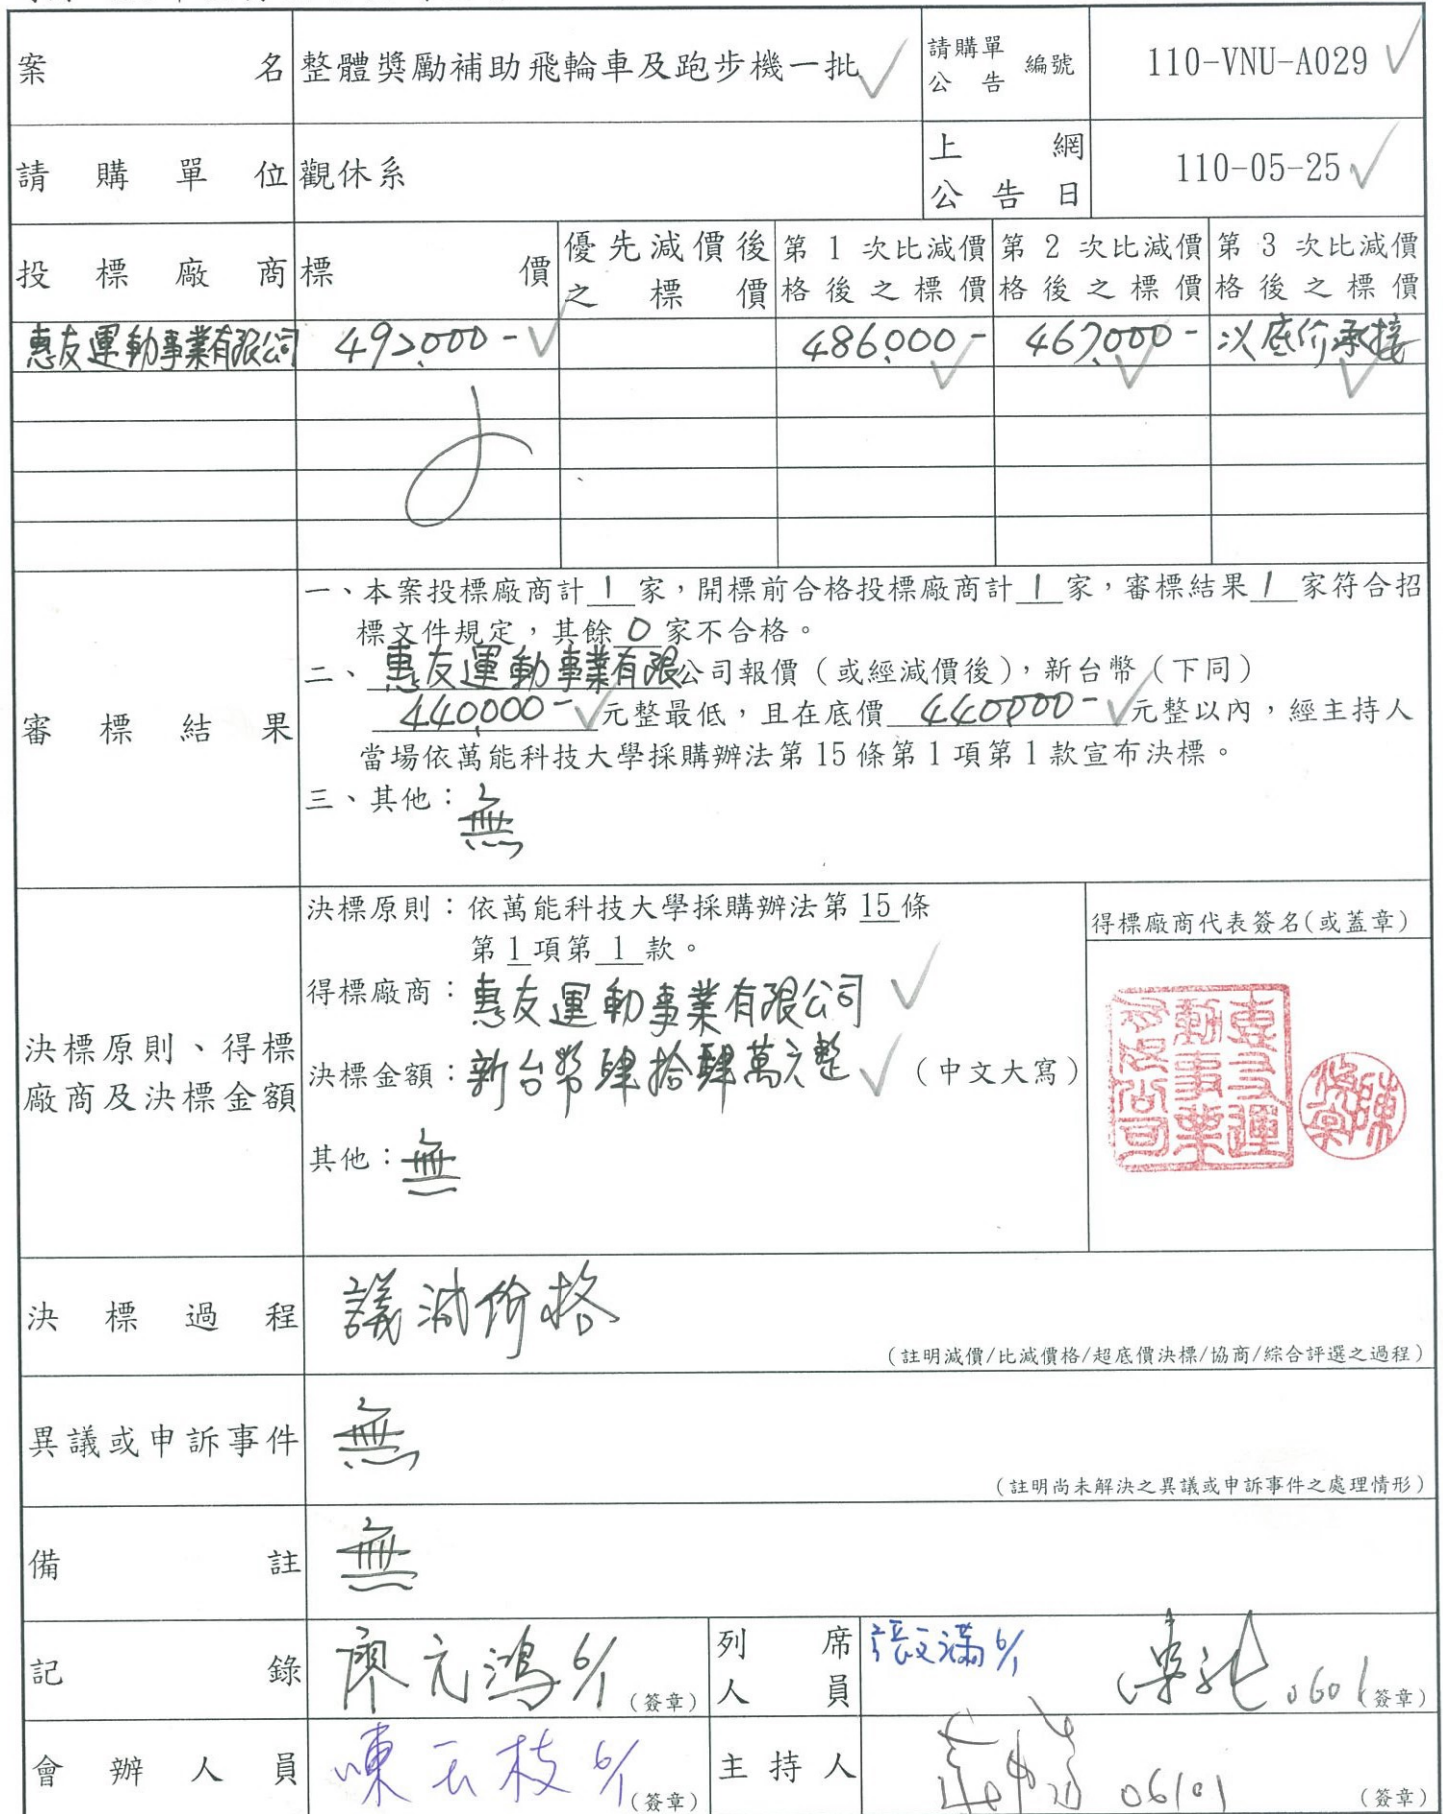 案名 整體獎勵補助飛輪車及跑步機一批 請購單公告編號 110-VNU-A029
請購單位 觀休系 上網公告日 110-05-25
投標廠商 標價 優先減價後之標價 第1次比減價格後之標價 第2次比減價格後之標價 第3次比減價格後之標價
惠友運動事業有限公司 492,000- 486,000- 467,000- 以底价承接
審標結果
一、本案投標廠商計 1 家，開標前合格投標廠商計 1 家，審標結果 1 家符合招
標文件規定，其餘 0 家不合格。
二、惠友運動事業有限公司報價（或經減價後），新台幣（下同）
440,000- 元整最低，且在底價 440,000- 元整以內，經主持人
當場依萬能科技大學採購辦法第15條第1項第1款宣布決標。
三、其他：無
決標原則、得標
廠商及決標金額
決標原則：依萬能科技大學採購辦法第 15 條
第 1 項第 1 款。
得標廠商：惠友運動事業有限公司
決標金額：新台幣肆拾肆萬元整（中文大寫）
其他：無
得標廠商代表簽名(或蓋章)
惠友運動事業有限公司
決標過程 議減價格
（註明減價/比減價格/超底價決標/協商/綜合評選之過程）
異議或申訴事件 無
（註明尚未解決之異議或申訴事件之處理情形）
備註 無
記錄 廖元鴻 6/1 （簽章） 列席人員 張文滿 6/1 0601 （簽章）
會辦人員 6/1 （簽章） 主持人 （簽章）